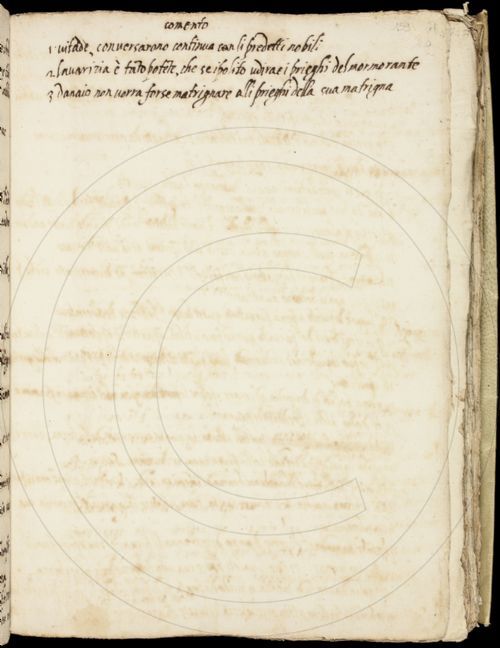 comento
1 vitade conversarono continua con li predetti nobili
2 Lavarizia è tato potete, che se ipolito udirae i prieghi del mormorante
3 Danaio non vorra forse matrignare a li prieghi della sua matrigna